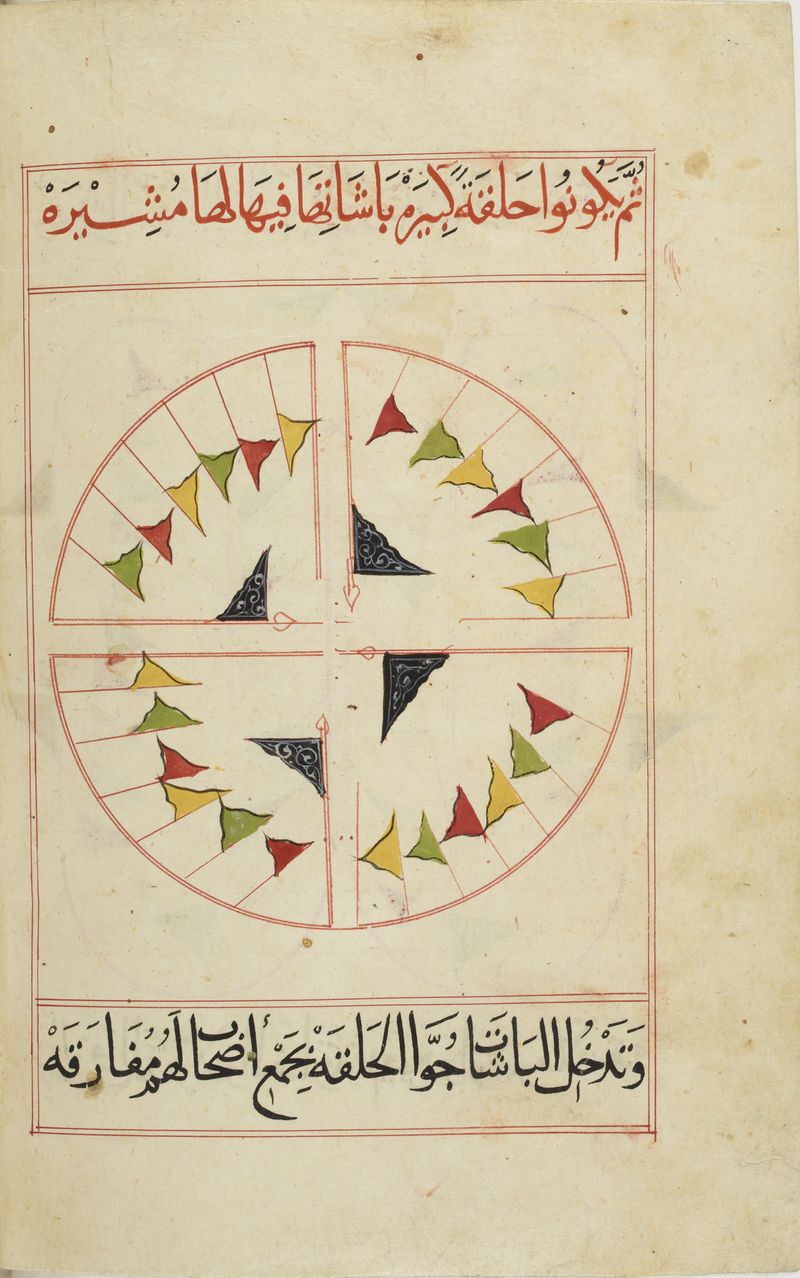 ثُمَّ يَكُونُوا حَلقَةً كَبِيرَهْ بَاشَاتهَا فِيهَا لهَا مُشِيْرَهْ
وَتَدْخُل البَاشَات جُوَّا الحَلقَهْ بِجَمْعِ أَصْحَاب لَهُم مُفَارِقَهْ